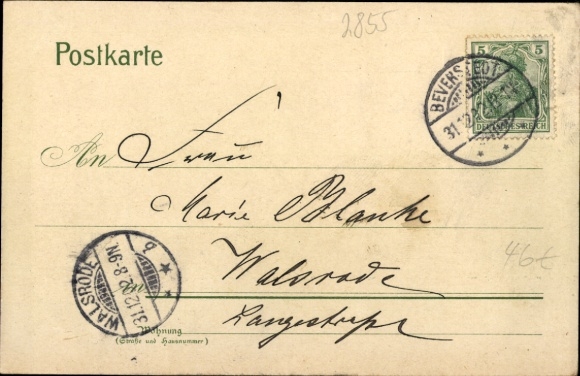 2855
Postkarte
5 5
DEUTSCHES REICH
BEVERSTEDT
31.12
An Frau
Marie Blanke
Walsrode
in
Langestraße
WALSRODE
31.12.02.8-9N.
b
Wohnung
(Straße und Hausnummer)